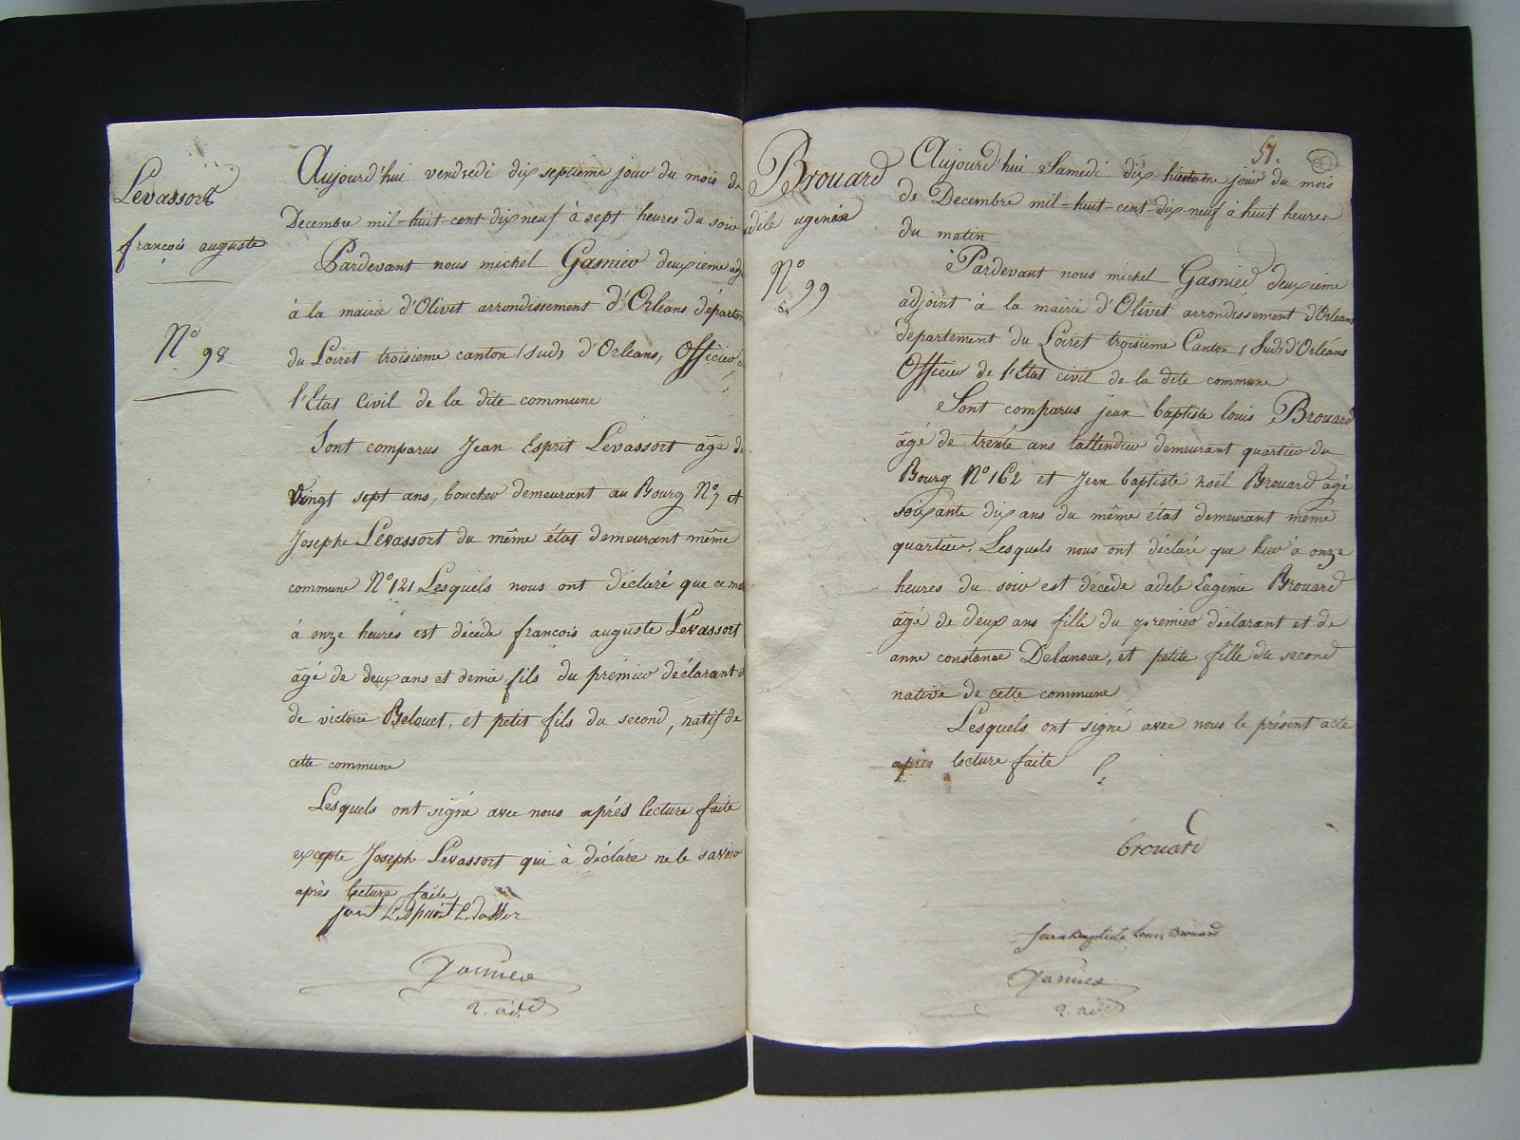 Levassort
françois auguste
N° 98
Aujourd'hui vendredi dix septieme jour du mois de
Decembre mil-huit-cent dix neuf à sept heures du soir
Pardevant nous michel Gasnier deuxieme adj
à la mairie d'Olivet arrondissement d'Orleans départem
du Loiret troisieme canton (sud) d'Orleans, Officier de
l'Etat Civil de la dite commune
Sont comparus Jean Esprit Levassort âgé de
Vingt sept ans, boucher demeurant au Bourg N° 7 et
Joseph Levassort du même état demeurant même
commune N° 121 Lesquels nous ont déclaré que ce mat
à onze heures est décédé françois auguste Levassort
âgé de deux ans et demie fils du prémier déclarant et
de victoire Belouet, et petit fils du second, natif de
cette commune
Lesquels ont signé avec nous aprés lecture faite
excepte Joseph Levassort qui à déclare ne le savoir
après lecture faite
Gasnier
2. adj
51.
Brouard
adele ugenie
N° 99
Aujourd'hui Samedi dix huitieme jour du mois
de Decembre mil-huit-cent-dix-neuf à huit heures
du matin
Pardevant nous michel Gasnier deuxieme
adjoint à la mairie d'Olivet arrondissement d'Orleans
departement du Loiret troisieme Canton (Sud) d'Orléans
Officier de l'Etat civil de la dite commune
Sont comparus jean baptiste louis Brouard
âgé de trente ans demeurant quartier du
Bourg N° 162 et Jean baptiste noël Brouard âgé
soixante dix ans du même état demeurant même
quartier. Lesquels nous ont déclaré que hier à onze
heures du soir est décédé adele Eugenie Brouard
âgé de deux ans fille du premier déclarant et de
anne constance Delanoue, et petite fille du second
native de cette commune
Lesquels ont signé avec nous le présent acte
après lecture faite
brouard
Jean Baptiste Louis Brouard
Gasnier
2. adj